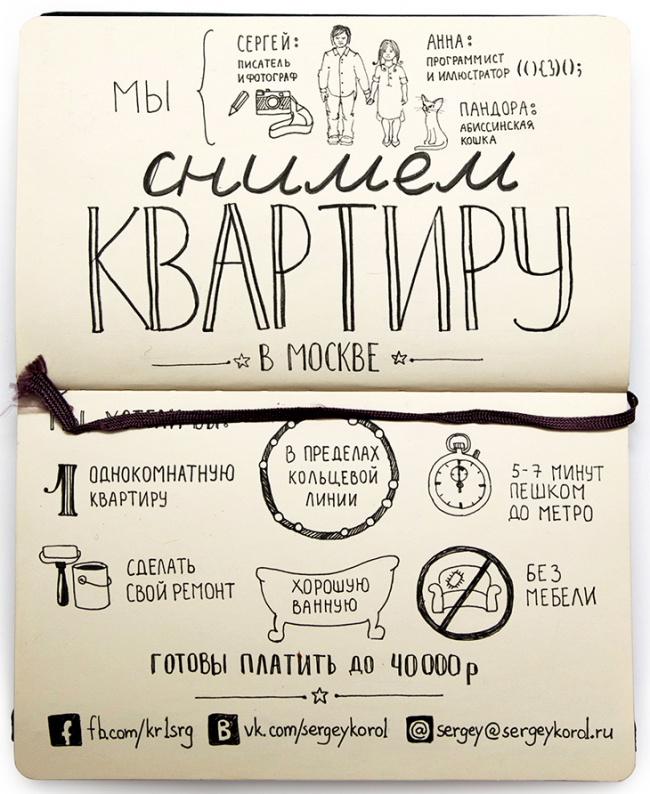 МЫ
СЕРГЕЙ:
ПИСАТЕЛЬ
И ФОТОГРАФ
АННА:
ПРОГРАММИСТ
И ИЛЛЮСТРАТОР ((){3})();
ПАНДОРА:
АБИССИНСКАЯ
КОШКА
снимем
КВАРТИРУ
В МОСКВЕ
1 ОДНОКОМНАТНУЮ
КВАРТИРУ
В ПРЕДЕЛАХ
КОЛЬЦЕВОЙ
ЛИНИИ
5-7 МИНУТ
ПЕШКОМ
ДО МЕТРО
СДЕЛАТЬ
СВОЙ РЕМОНТ
ХОРОШУЮ
ВАННУЮ
БЕЗ
МЕБЕЛИ
ГОТОВЫ ПЛАТИТЬ ДО 40000р
f fb.com/kr1srg B vk.com/sergeykorol @ sergey@sergeykorol.ru